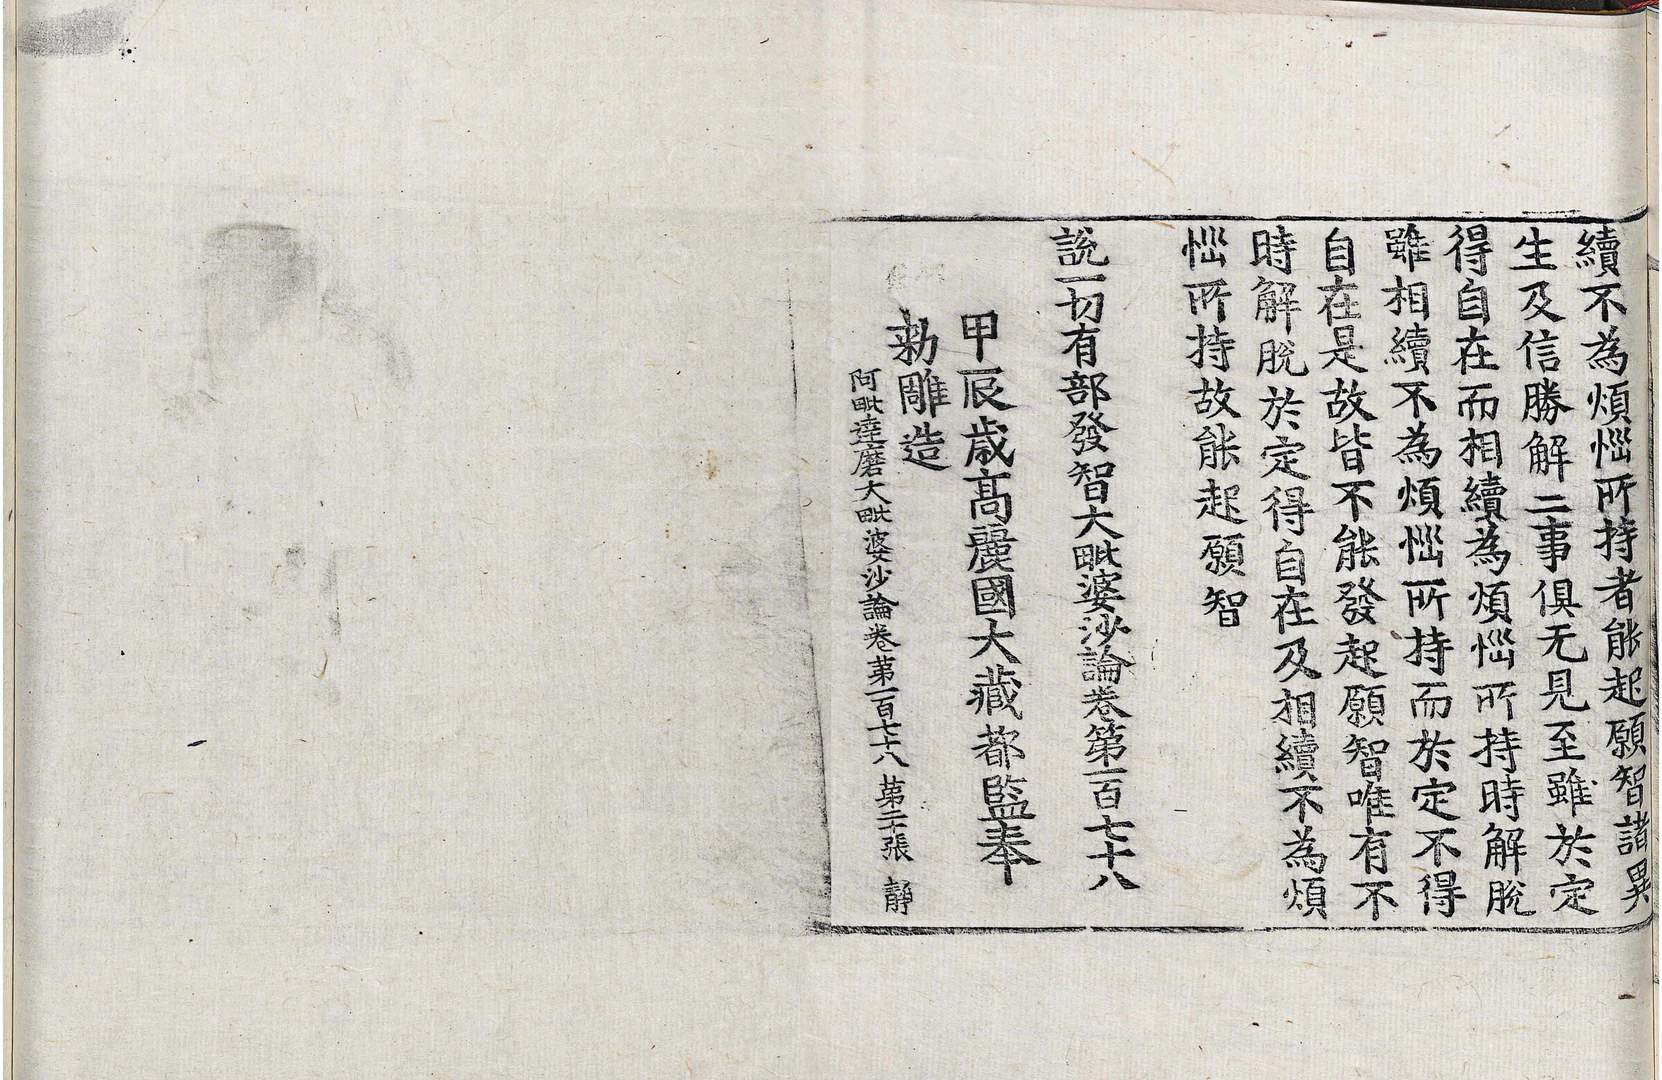 續不為煩惱所持者能起願智諸異
生及信勝解二事俱无見至雖於定
得自在而相續為煩惱所持時解脫
雖相續不為煩惱所持而於定不得
自在是故皆不能發起願智唯有不
時解脫於定得自在及相續不為煩
惱所持故能起願智
說一切有部發智大毗婆沙論卷第一百七十八
甲辰歲高麗國大藏都監奉
勅雕造
阿毗達磨大毗婆沙論卷第一百七十八 第二十張 靜